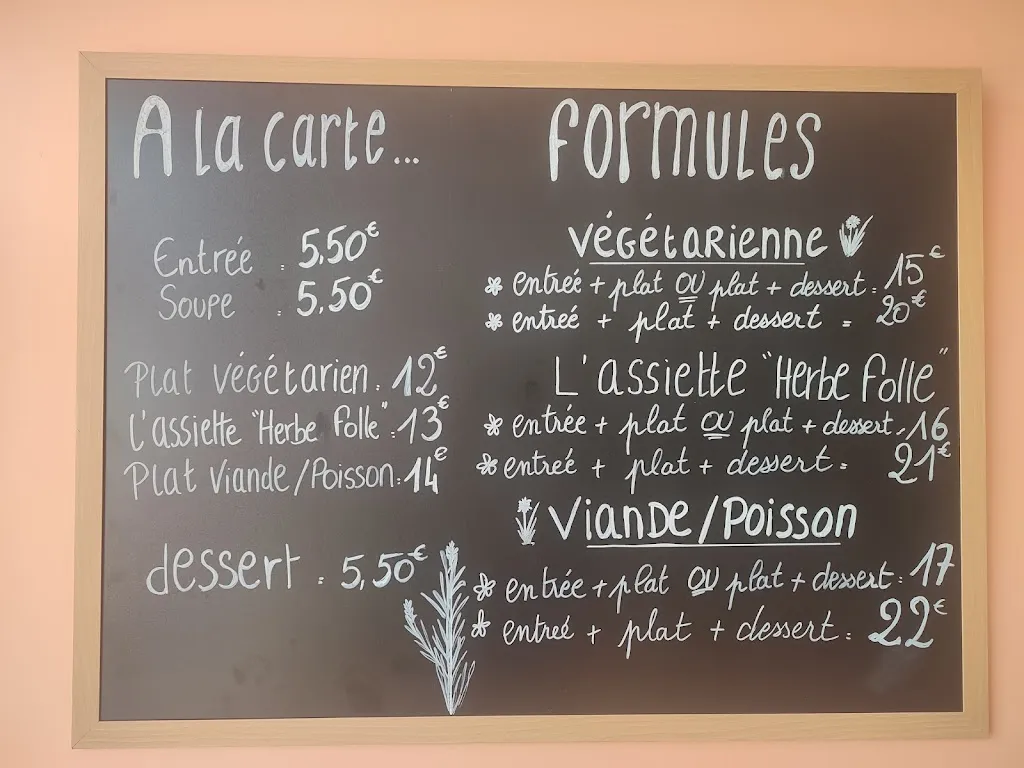 A la carte...
Entrée : 5,50€
Soupe : 5,50€
Plat végétarien : 12€
L'assiette "Herbe Folle" : 13€
Plat Viande/Poisson : 14€
dessert : 5,50€
Formules
végétarienne
* entrée + plat OU plat + dessert : 15€
* entreé + plat + dessert = 20€
L'assiette "Herbe Folle"
* entrée + plat OU plat + dessert : 16
* entreé + plat + dessert = 21€
Viande/Poisson
* entrée + plat OU plat + dessert : 17
* entreé + plat + dessert : 22€